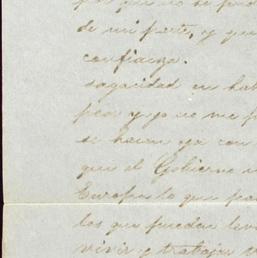 por que no se pue
de mi parte, y que
confianza.
sagacidad en hab
pero y yo no me p
se hacen ya con
que el Gobierno
Europa lo que pa
los que puedan lev
vivir y trabajar